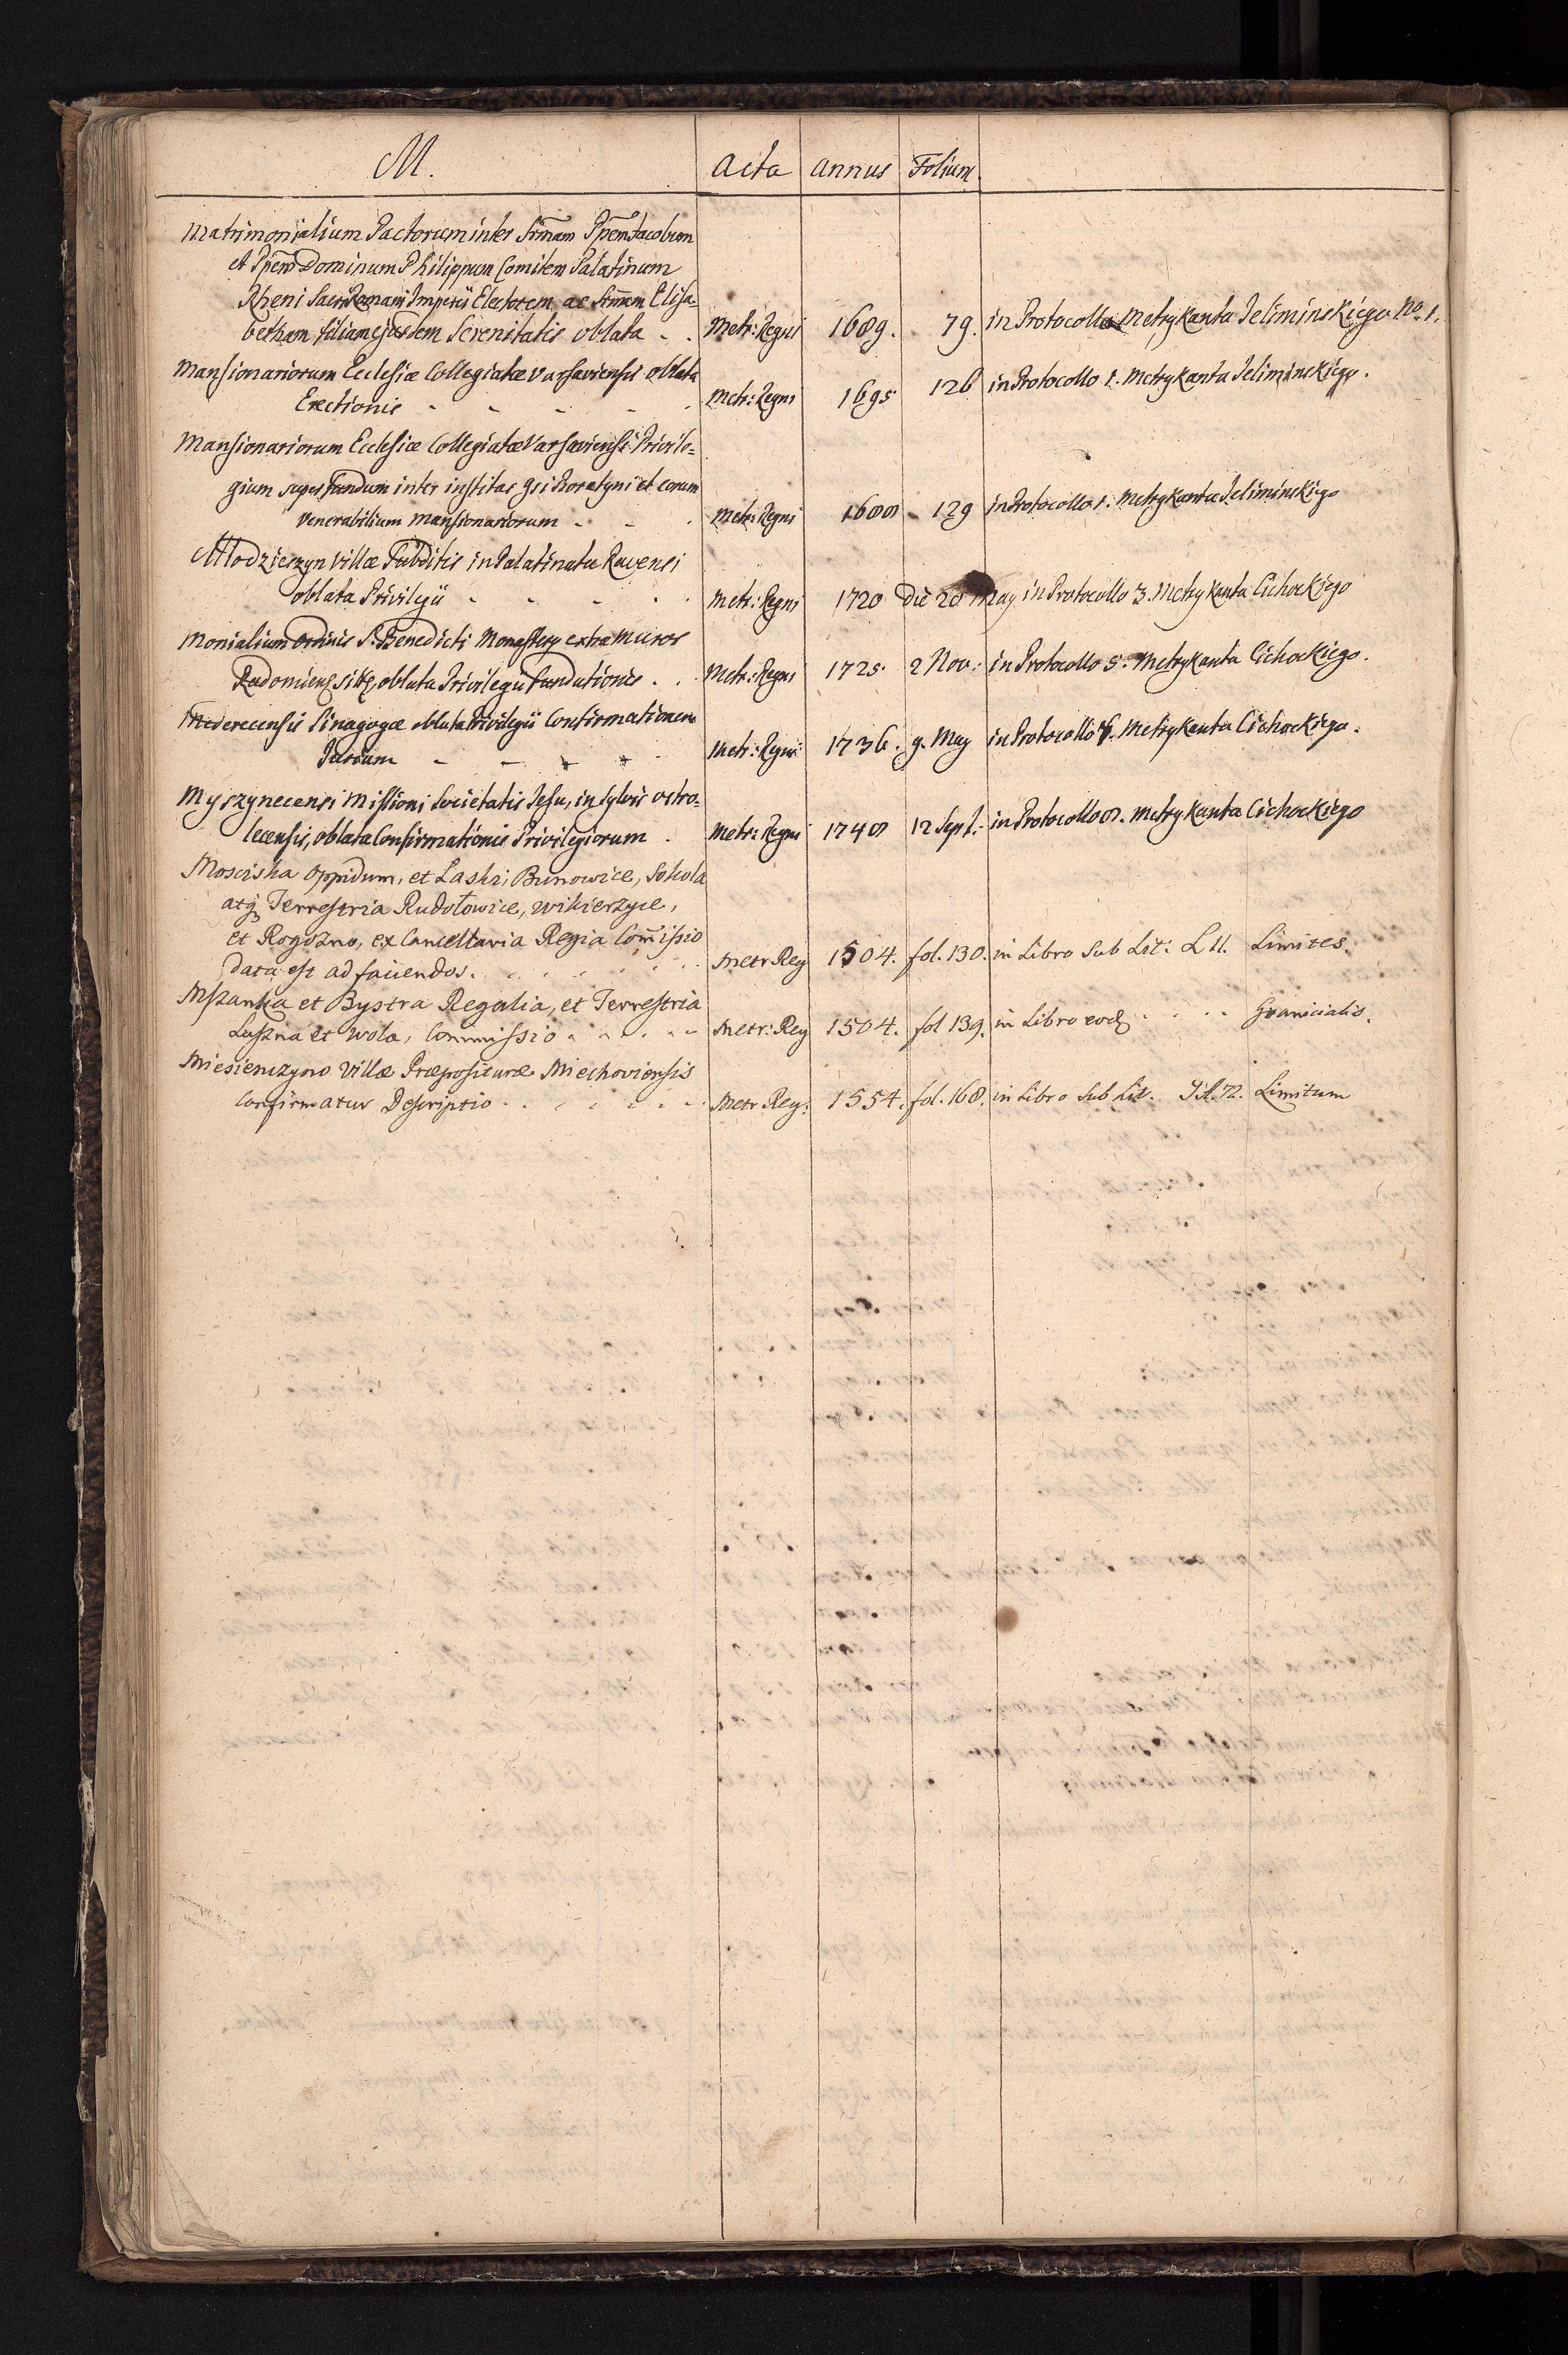 M. Acta Annus Folium.
Matrimonialium Pactorum inter Srm̃am Ppem̃ Jacobum
et Ppem̃ Dominum Philippum Comitem Palatinum
Rheni Sacri Romani Imperii Electorem ac Srm̃am Elisa-
betham filiam ejusdem Serenitatis oblata - . Metr: Regni 1689. 79. in Protocollo Metrykanta Jelimińskiego No. 1.
Mansionariorum Ecclesiæ Collegiatæ Varsaviensis oblata
Erectionis - - - - - Metr: Regni 1695 126 in Protocollo 1. Metrykanta Jelimińskiego.
Mansionariorum Ecclesiæ Collegiatæ Varsaviensis Privile=
gium super fundum inter institas Gsi Horatyni et eorum
Venerabilium Mansionariorum - - . Metr: Regni 1688 - 129 in Protocollo 1. Metrykanta Jelimińskiego
Młodzieszyn Villæ Subditis in Palatinatu Ravensi
oblata Privilegii - - - - . Metr: Regni 1720 Die 20 May in Protocollo 3. Metrykanta Cichockiego
Monialium Ordinis S. Benedicti Monastery extra muros
Radomienses sitæ, oblata Privilegii Fundationis . . Metr: Regni 1725. 2 Nov: in Protocollo 5. Metrykanta Cichockiego.
Mederecensis Sinagogæ oblata Privilegii Confirmationem
Jurium - - - - - Metr: Regni 1736. 9. May in Protocollo 6. Metrykanta Cichockiego.
Myszynecensi Missioni Societatis Jesu, in Sylvis Ostro=
lecensis, oblata Confirmationis Privilegiorum . Metr: Regni 1748 12 Sept: in Protocollo 8. Metrykanta Cichockiego
Mosciska Oppidum, et Laski, Bunowice, Sokola
atq Terrestria Rudołowice, Wikierzyce,
et Rogozno, ex Cancellaria Regia Com̃issio
data est ad faciendos. . . . . . . Metr Reg 1504. fol. 130. in Libro sub Lit: L ll. Limites.
Mszanka et Bystra Regalia, et Terrestria
Luszna et Wola, Commissio . . . . Metr: Reg 1504. fol 139. in Libro eod . . . . Granicialis.
Miesienczyno Villæ Præposituræ Miechoviensis
Confirmatur Descriptio . . . . . . Metr Reg. 1554. fol. 168. in Libro sub Lit. Ill. 72. Limitum